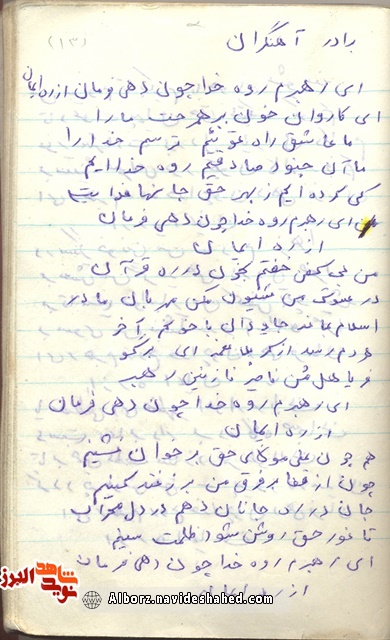 برادر آهنگران
(۱۳)
ای رهبرم روح خدا چون دهی فرمان از ره ایمان
ای کاروان خون بر همرهت ما را
ما عاشق راه توئیم ترسم خدا را
ما آن جنود صادقیم روح خدا ایم
کی کرده ایم رهبر حق جانها فدایت
ای رهبرم روح خدا چون دهی فرمان
از ره ایمان
من کفن خفتم بخون در ره قرآن
در سوگ من شیون مکن مهربان مادر
اسلام بماند جاودان با خونم آخر
هردم رسد از کربلا نغمه ای بر گو
فریاد هل من ناصر نازنین رهبر
ای رهبرم روح خدا چون دهی فرمان
از ره ایمان
هم چون علی مولای حق بر خوان نشینم
چون از قفا بر فرق من
جان در ره جانان دهم در دل محراب
تا نور حق روشن شود ظلمت
ای رهبرم روح خدا چون دهی فرمان
از ره ایمان
نوید شاهد البرز
Alborz.navideshahed.com